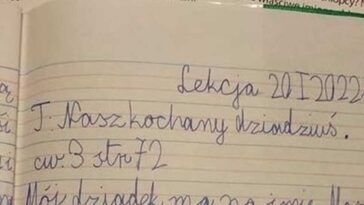 Lekcja 20 I 2022
T: Nasz kochany dziadziuś.
ćw. 3 str 72
Mój dziadek ma na imię